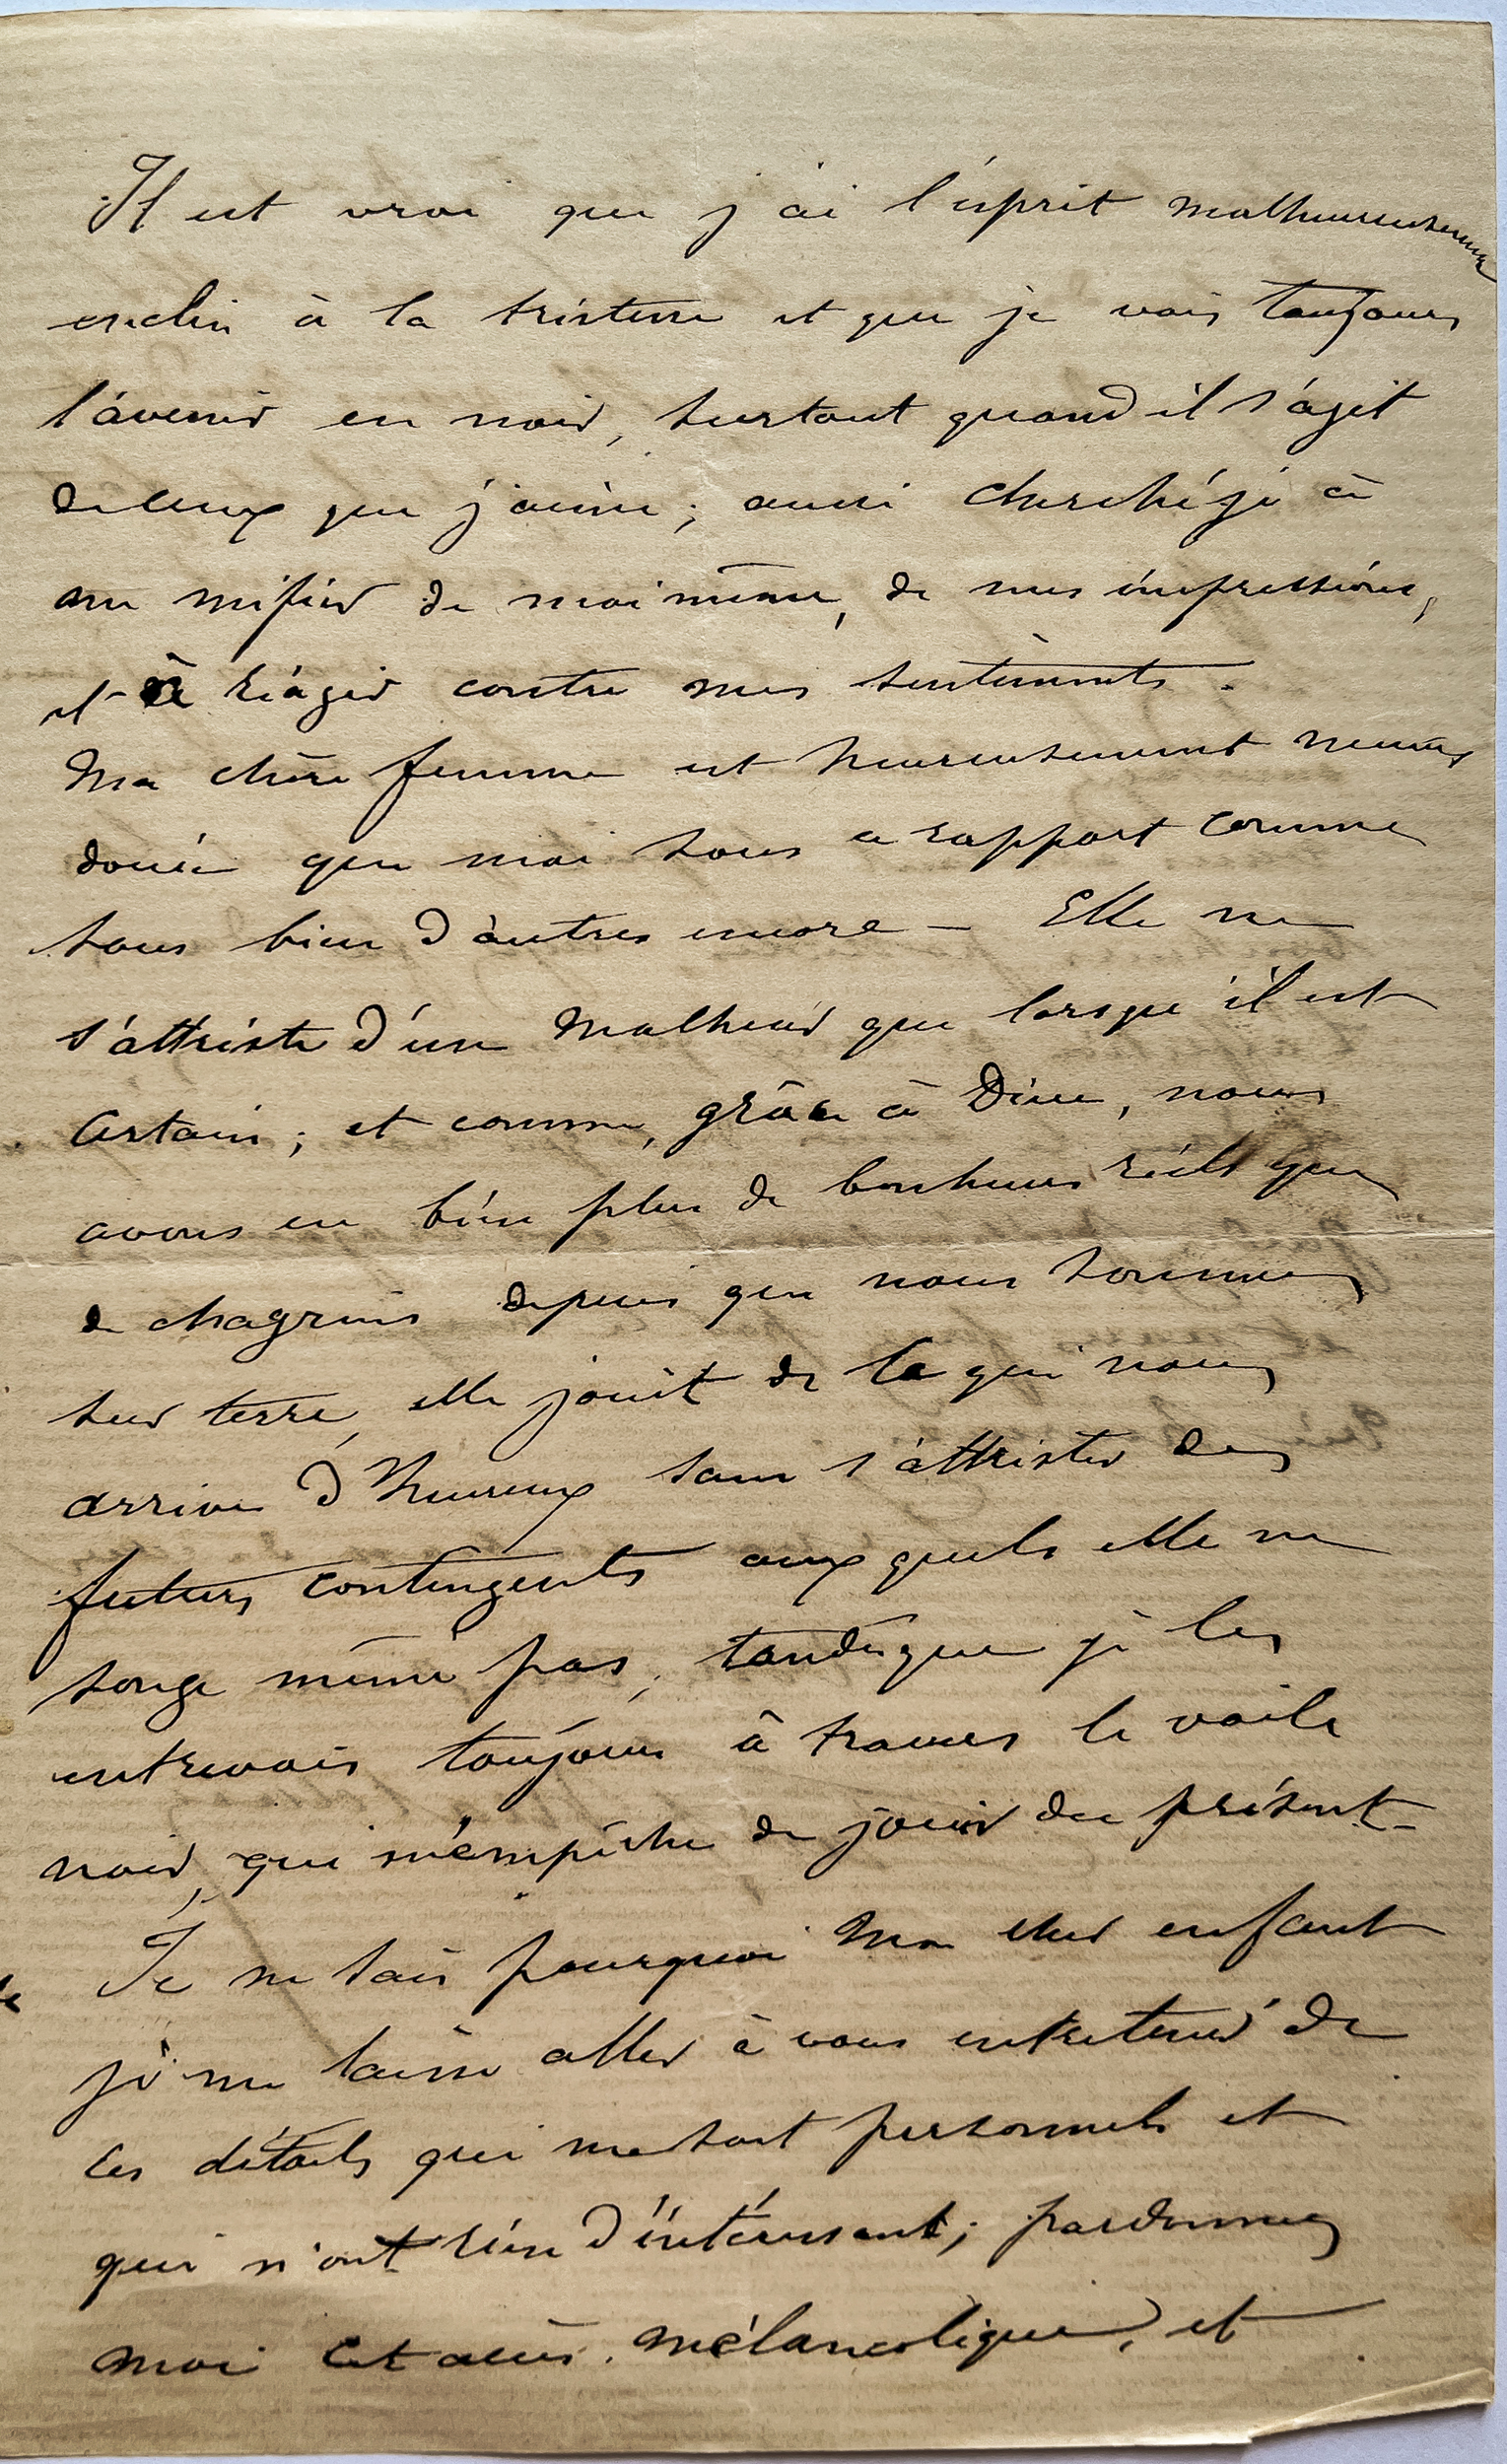 Il est vrai que j'ai l'esprit malheureusement
enclin à la tristesse et que je vois toujours
l'avenir en noir, surtout quand il s'agit
de ceux que j'aime ; aussi cherché-je à
me méfier de moi même, de mes impressions,
et à réagir contre mes sentiments.
Ma chère femme est heureusement mieux
douée que moi sous ce rapport comme
sous bien d'autres encore – Elle ne
s'attriste d'un malheur que lorsqu'il est
certain ; et comme, grâce à Dieu, nous
avons eu bien plus de bonheurs réels que
de chagrins depuis que nous sommes
sur terre, elle jouit de ce qui nous
arrive d'heureux sans s'attrister des
futurs contingents auxquels elle ne
songe même pas, tandis que je les
entrevois toujours à travers le voile
noir, qui m'empêche de jouir du présent –
Je ne sais pourquoi mon cher enfant
je me laisse aller à vous entretenir de
ces détails qui me sont personnels et
qui n'ont rien d'intéressant ; pardonnez
moi cet accès mélancolique, et